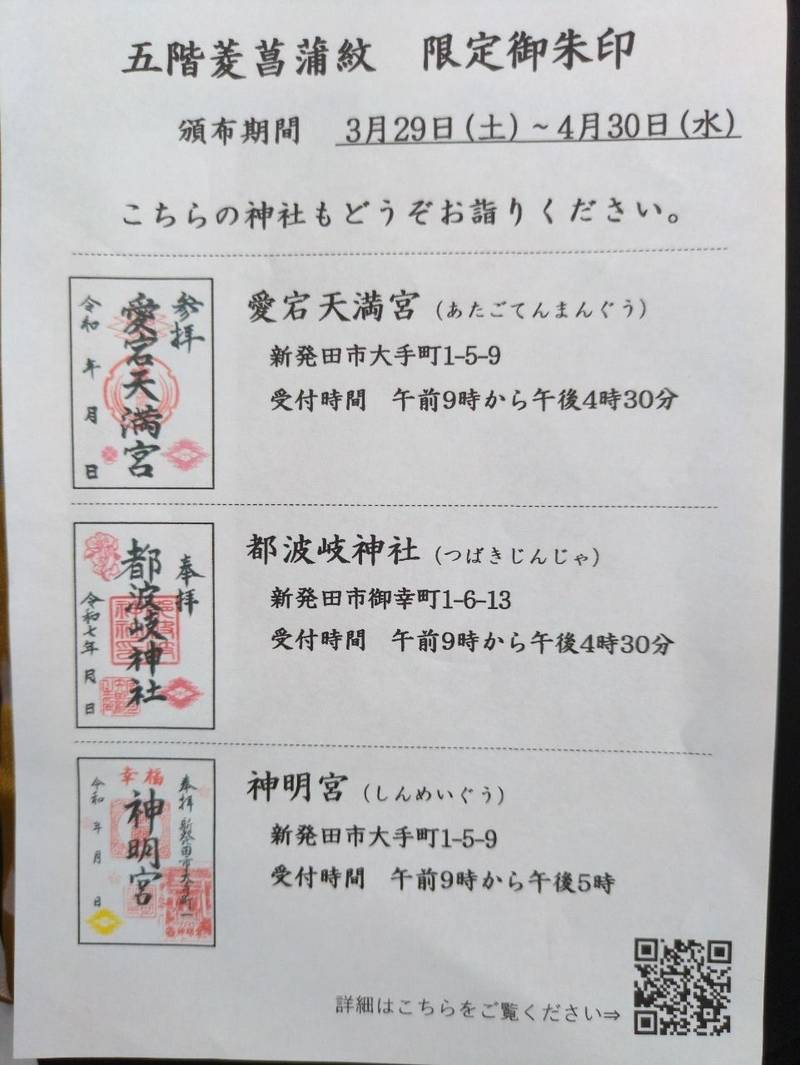 五階菱菖蒲紋　限定御朱印
頒布期間　3月29日(土)~4月30日(水)
こちらの神社もどうぞお詣りください。
参拝
愛宕天満宮
令和　年　月　日
愛宕天満宮(あたごてんまんぐう)
新発田市大手町1-5-9
受付時間　午前9時から午後4時30分
奉拝
都波岐神社
令和七年　月　日
都波岐神社(つばきじんじゃ)
新発田市御幸町1-6-13
受付時間　午前9時から午後4時30分
幸福
奉拝 新発田市大手町一
神明宮
令和　年　月　日
神明宮(しんめいぐう)
新発田市大手町1-5-9
受付時間　午前9時から午後5時
詳細はこちらをご覧ください⇒